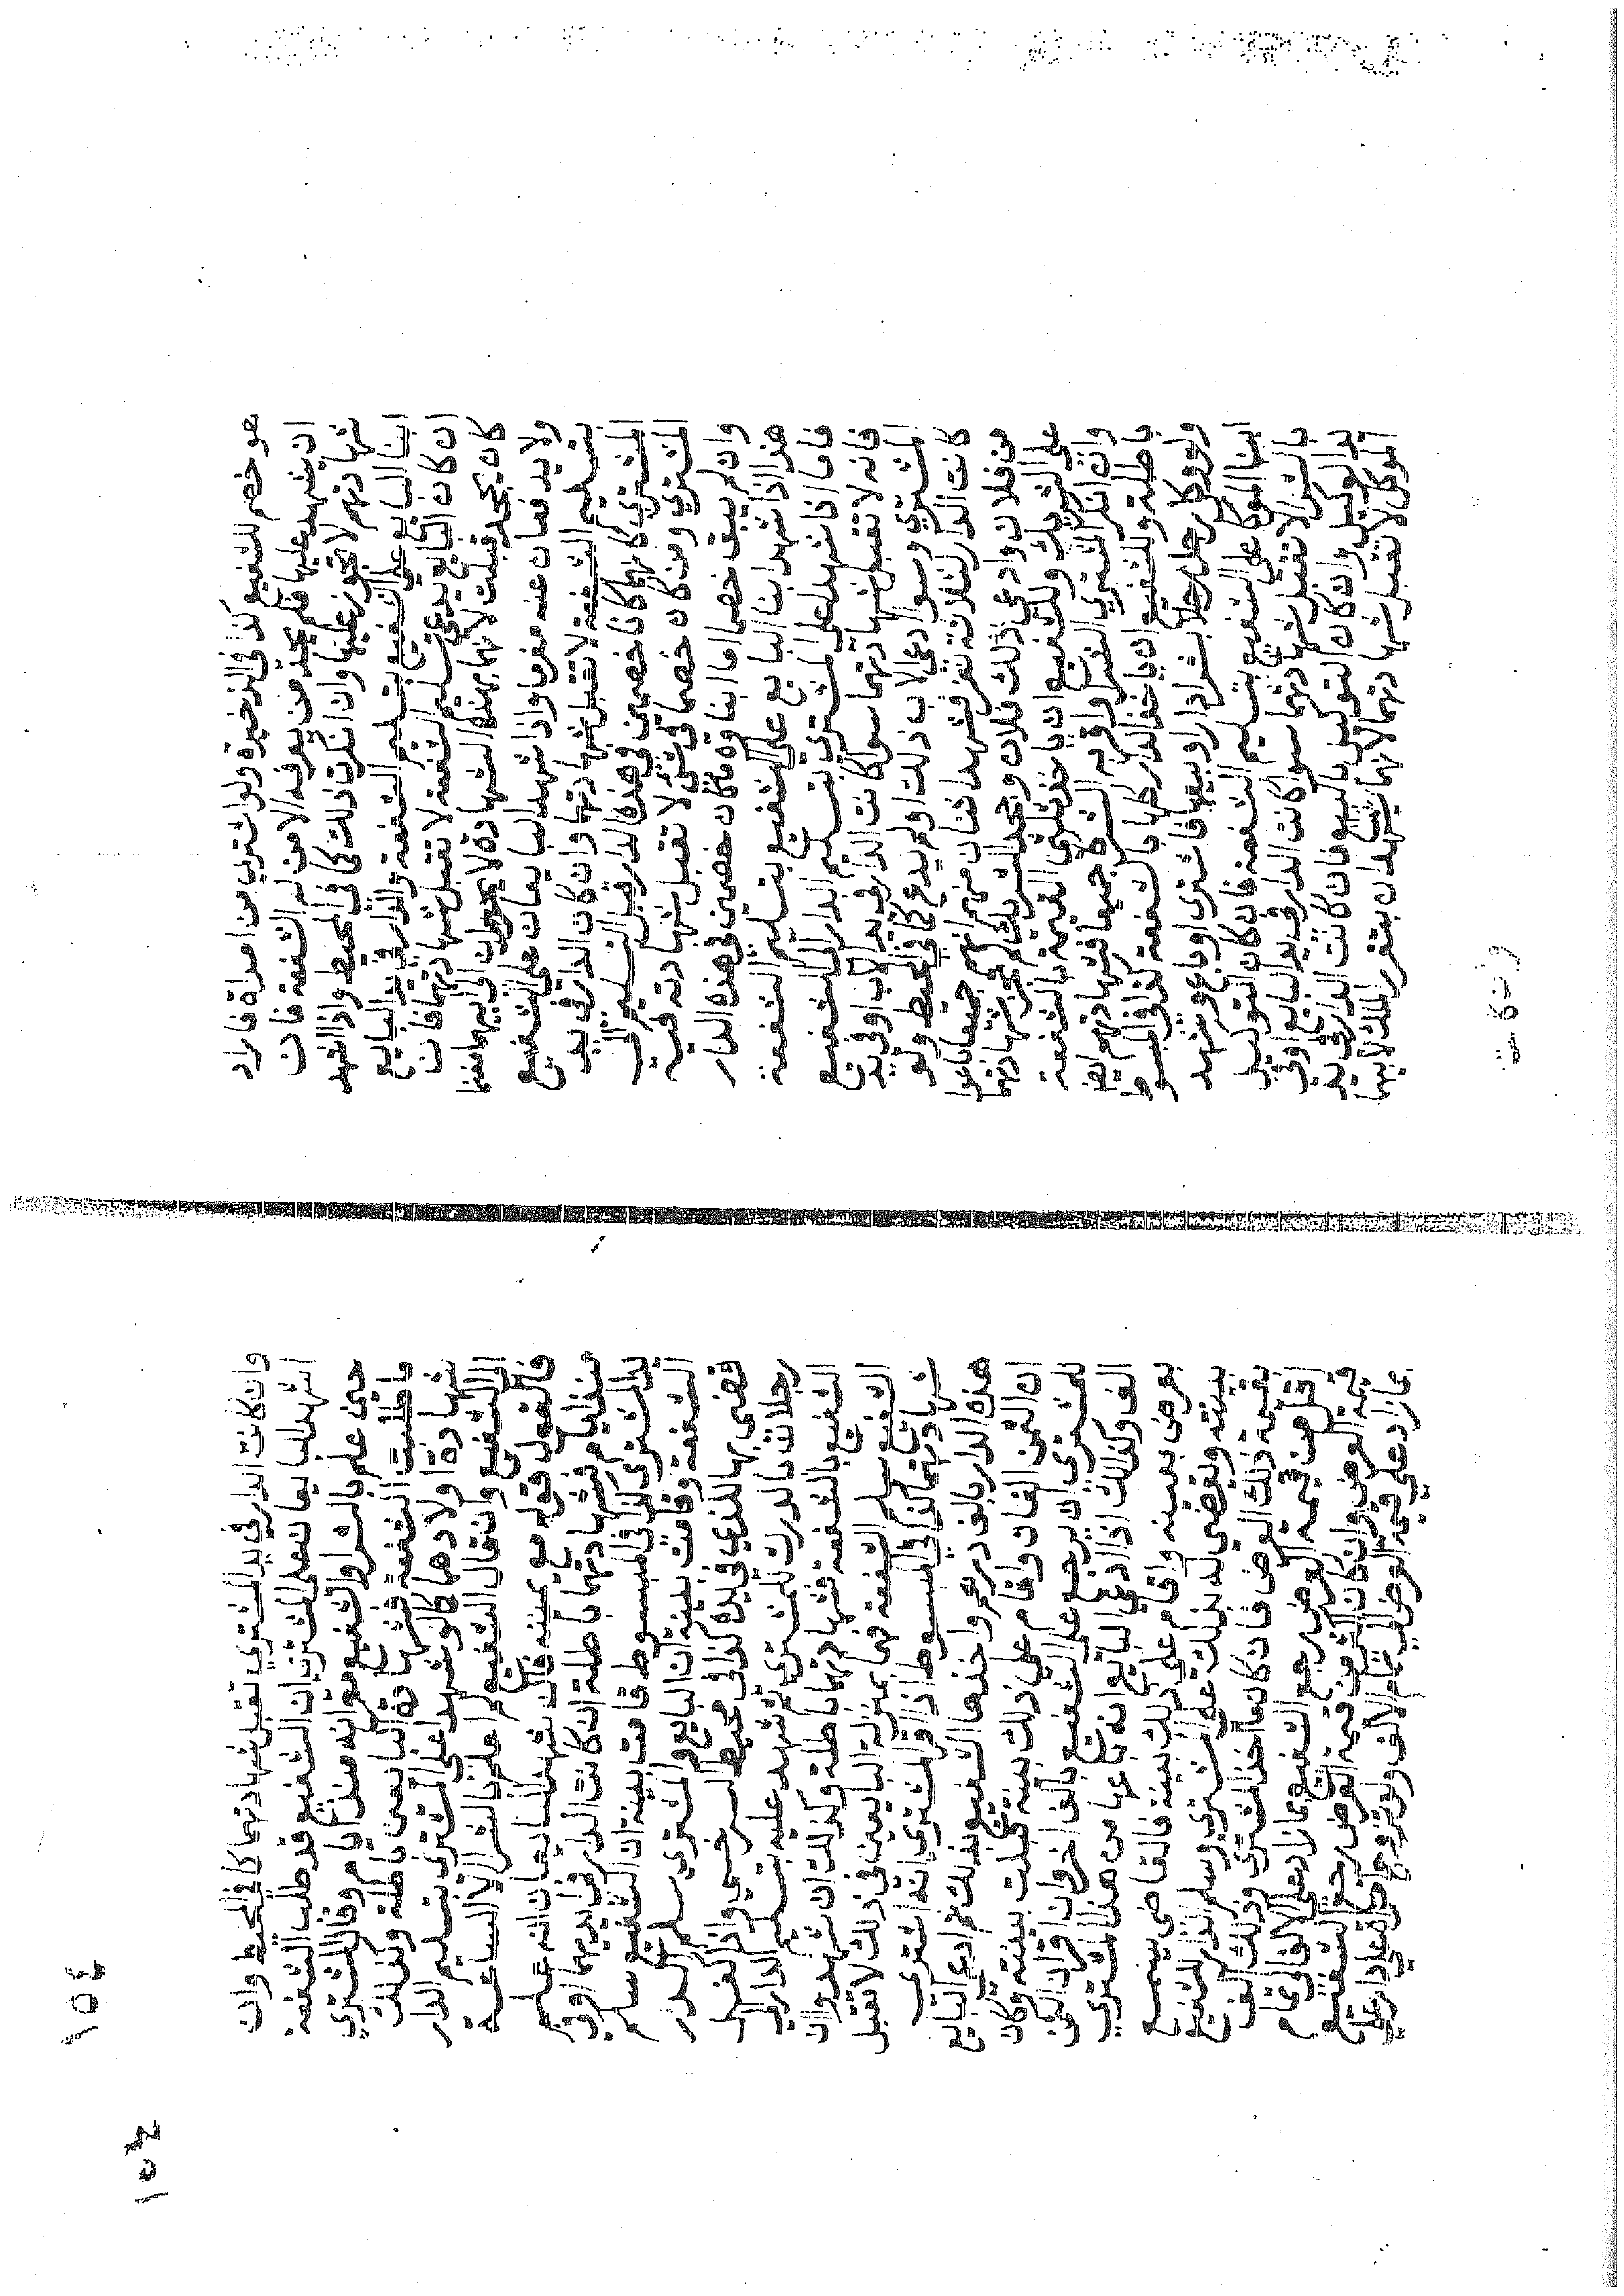 هو خصم للشفيع كذا في الذخيرة ولو اشتري من امراة فاراد
ان يشهد عليها فلم يجد من يعرفه الا من له الشفعة فان
شهادتهم لا تجوز عليها وان انكرت ذلك كما في المحيط واذا شهد
ابنا البايع علي الشفيع بتسليم الشفعة والدار في يد البايع
ان كان البايع يدعي تسليم الشفعة لا تقبل شهادتهما فان
كان يجحد قبلت لانهما بهذه الشهادة لا يجران الى ابيهما مغنما
ولا يدفعان عنه مغرما واذا شهد البايعان علي الشفيع
بتسليم الشفعة لا تقبل شهادتهما وان كان الدار في يد
المشتري كانهما كانا خصمين في هذه الدار قبل التسليم الي
المشتري ومن كان خصما في شئ لا تقبل شهادته فيه
وان لم يبق خصما اما ابناه ما كانا خصمين في هذه الدار
هذا اذا شهد ابنا البايع علي الشفيع بتسليم الشفعة
فاما اذا شهدا علي المشتري بتسليم الدار الى الشفيع
فانه لا تقبل شهادتهما سوا كانت الدار في يد الاب او في يد
المشتري وسوا ادعى الاب ذلك او لم يدع كما في المحيط ولو
كانت الدار لثلاثة نفر فشهد اثنان منهم انهم جميعا باعوا
من فلان وادعي ذلك فلان وجحد الشريك لم تجز شهادتهما
علي الشريك وللشفيع ان ياخذ ثلثي القيمة بالشفعة
وان انكر المشتري الشرا واقر به الشركا جميعا فشهادتهم ايضا
باطلة وللشفيع ان ياخذ الدار كلها بالشفعة كذا في المبسوط
ولو وكل رجل رجلا بشرا دار او بيعها فاشترى او باع وشهد
ابنا الموكل على الشفيع بتسليم الشفعة فان كان التوكيل
بالشرا لا تقبل شهادتهما سوا كانت الدار في يد البايع او في
يد الوكيل وان كان التوكيل بالبيع فان كانت الدار في يد
الموكل لا تقبل شهادتهما لانهما يشهدان بتقرير الملك لابيهما
وان كانت
١٥٤
١٥٤
وان كانت الدار في يد المشتري تقبل شهادتهما كما في المحيط وان
شهد البايعان على المشتري ان الشفيع قد طلب الشفعة
حين علم بالشرا والشفيع مقر انه منذ ايام وقال المشتري
ما طلبت الشفعة فشهادة البايعين باطلة وكذلك
شهادة اولادهما كالو شهدا على المشتري بتسليم الدار
الى الشفيع وان قال الشفيع لم اعلم بالشرا الا الساعة
فالقول قوله مع يمينه فان شهد البايعان انه علم
منذ ايام فشهادتهما باطلة ان كانت الدار في ايديهما او في
يد المشتري كذا في المبسوط قامت بينة ان الشفيع سلم
الشفعة وقامت بينة ان البايع والمشتري سلم الدار
قضي بها للذي في يده كذا في محيط السرخسي واذا
رجلان بالدرك للمشتري ثم شهد عليه بتسليم الدار الي
الشفيع بالشفعة فشهادتهما باطلة وكذلك ان شهدوا ان
الشفيع سلم الشفعة فهما بمنزلة البايعين في ذلك لا تقبل
شهادتهما كذا في المبسوط اذا اقر المشتري انه اشتري
هذه الدار بالف درهم واخذها الشفيع بذلك ثم ادعي البايع
ان الثمن الفان واقام علي ذلك بينة قبلت بينته وكان
للمشتري ان يرجع علي الشفيع بالف اخر وان اقر ان الثمن
الف وكذلك اذا ادعي البايع انه باعها من هذا المشتري
بعرض بعينه واقام علي ذلك بينة فالقاضي يسمع
بينته ويقضي له بذلك علي المشتري وسلم الدار للشفيع
بقيمة ذلك العرض فان كان ما اخذ المشتري وذلك الف
اقل من قيمة العرض رجع الشفيع بما زاد علي الالف الي تمام
قيمة العرض وان كان اكثر من قيمة العرض رجع الشفيع
بما زاد علي قيمة العرض الي تمام الالف ولو تزوج امراة علي دار علي